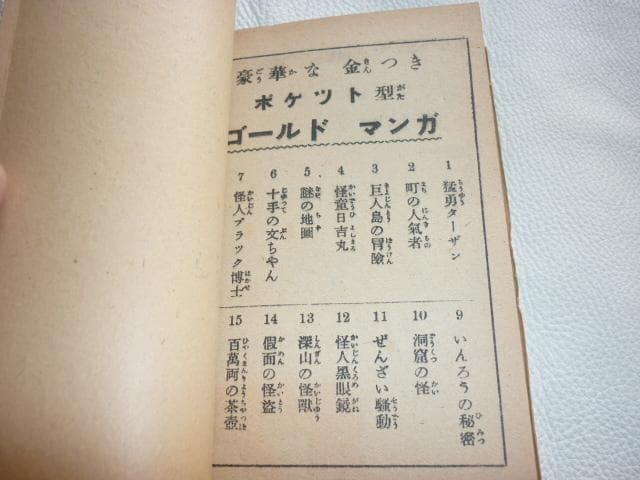 豪華な金つき
ポケット型
ゴールド マンガ
1 猛勇ターザン
2 町の人氣者
3 巨人島の冒險
4 怪童日吉丸
5 謎の地圖
6 十手の文ちやん
7 怪人ブラック博士
9 いんろうの秘密
10 洞窟の怪
11 ぜんざい騷動
12 怪人黒眼鏡
13 深山の怪獣
14 假面の怪盗
15 百萬両の茶壺